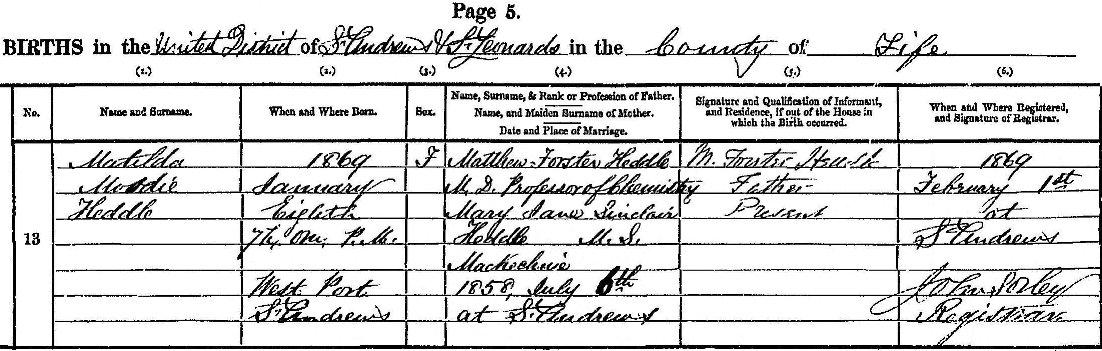 Page 5.
BIRTHS in the United District of St Andrews & St Leonards in the County of Fife
(1.) (2.) (3.) (4.) (5.) (6.)
No.
Name and Surname.
When and Where Born.
Sex.
Name, Surname, & Rank or Profession of Father.
Name, and Maiden Surname of Mother.
Date and Place of Marriage.
Signature and Qualification of Informant,
and Residence, if out of the House in
which the Birth occurred.
When and Where Registered,
and Signature of Registrar.
13
Matilda
Moodie
Heddle
1869
January
Eighth
7h. 0m. P.M.
West Port
St Andrews
F
Matthew Forster Heddle
M.D. Professor of Chemistry
Mary Jane Sinclair
Heddle M.S.
Mackechnie
1858, July 6th
at St Andrews
M. Forster Heddle
Father
Present
1869
February 1st
at
St Andrews
John Sorley
Registrar